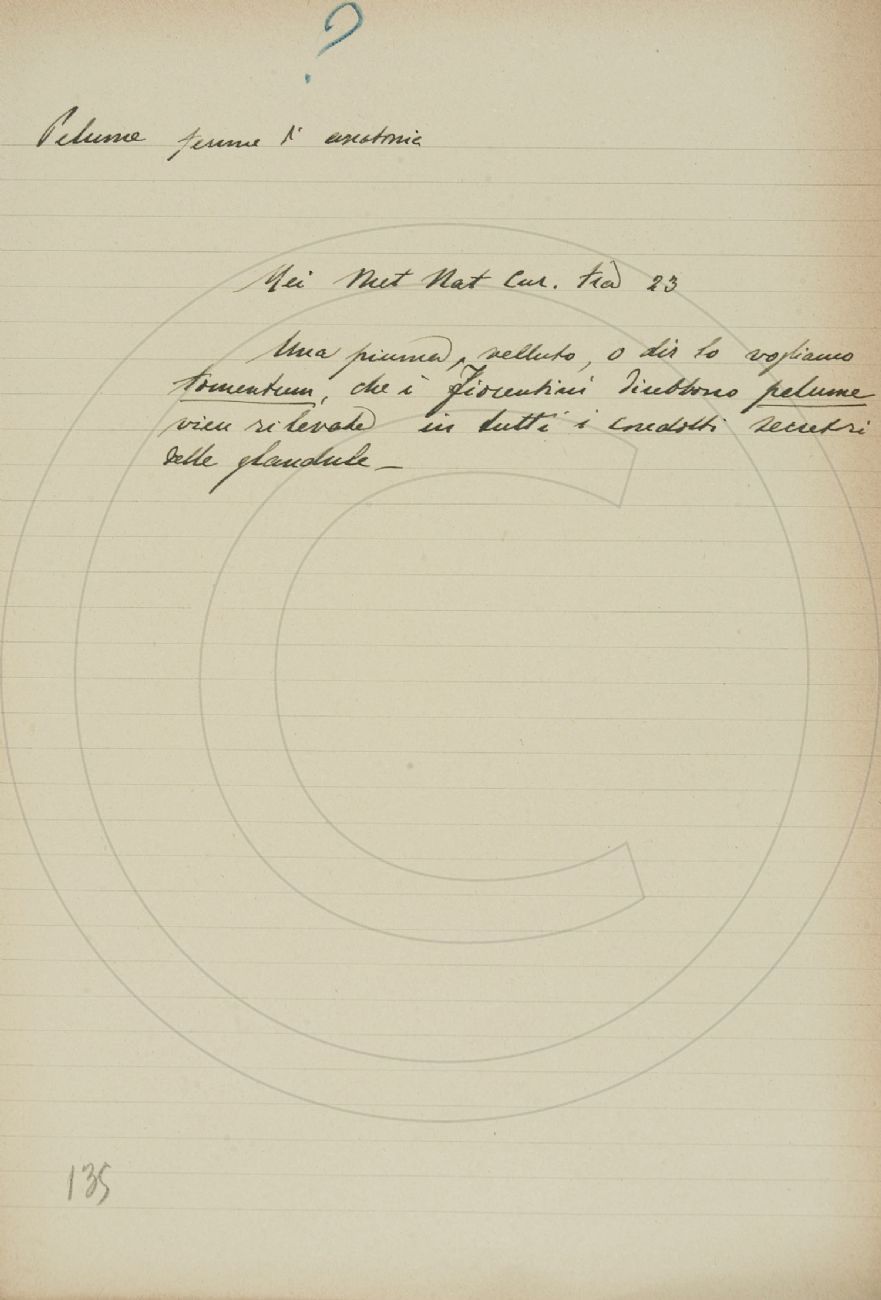 ?
Pelume termine d' anatomia
Mei Met Nat Cur. trad 23
Una piuma, velluto, o dir lo vogliamo
tomentum, che i Fiorentini direbbono pelume
vien rilevato in tutti i condotti secretri
delle glandule_
135